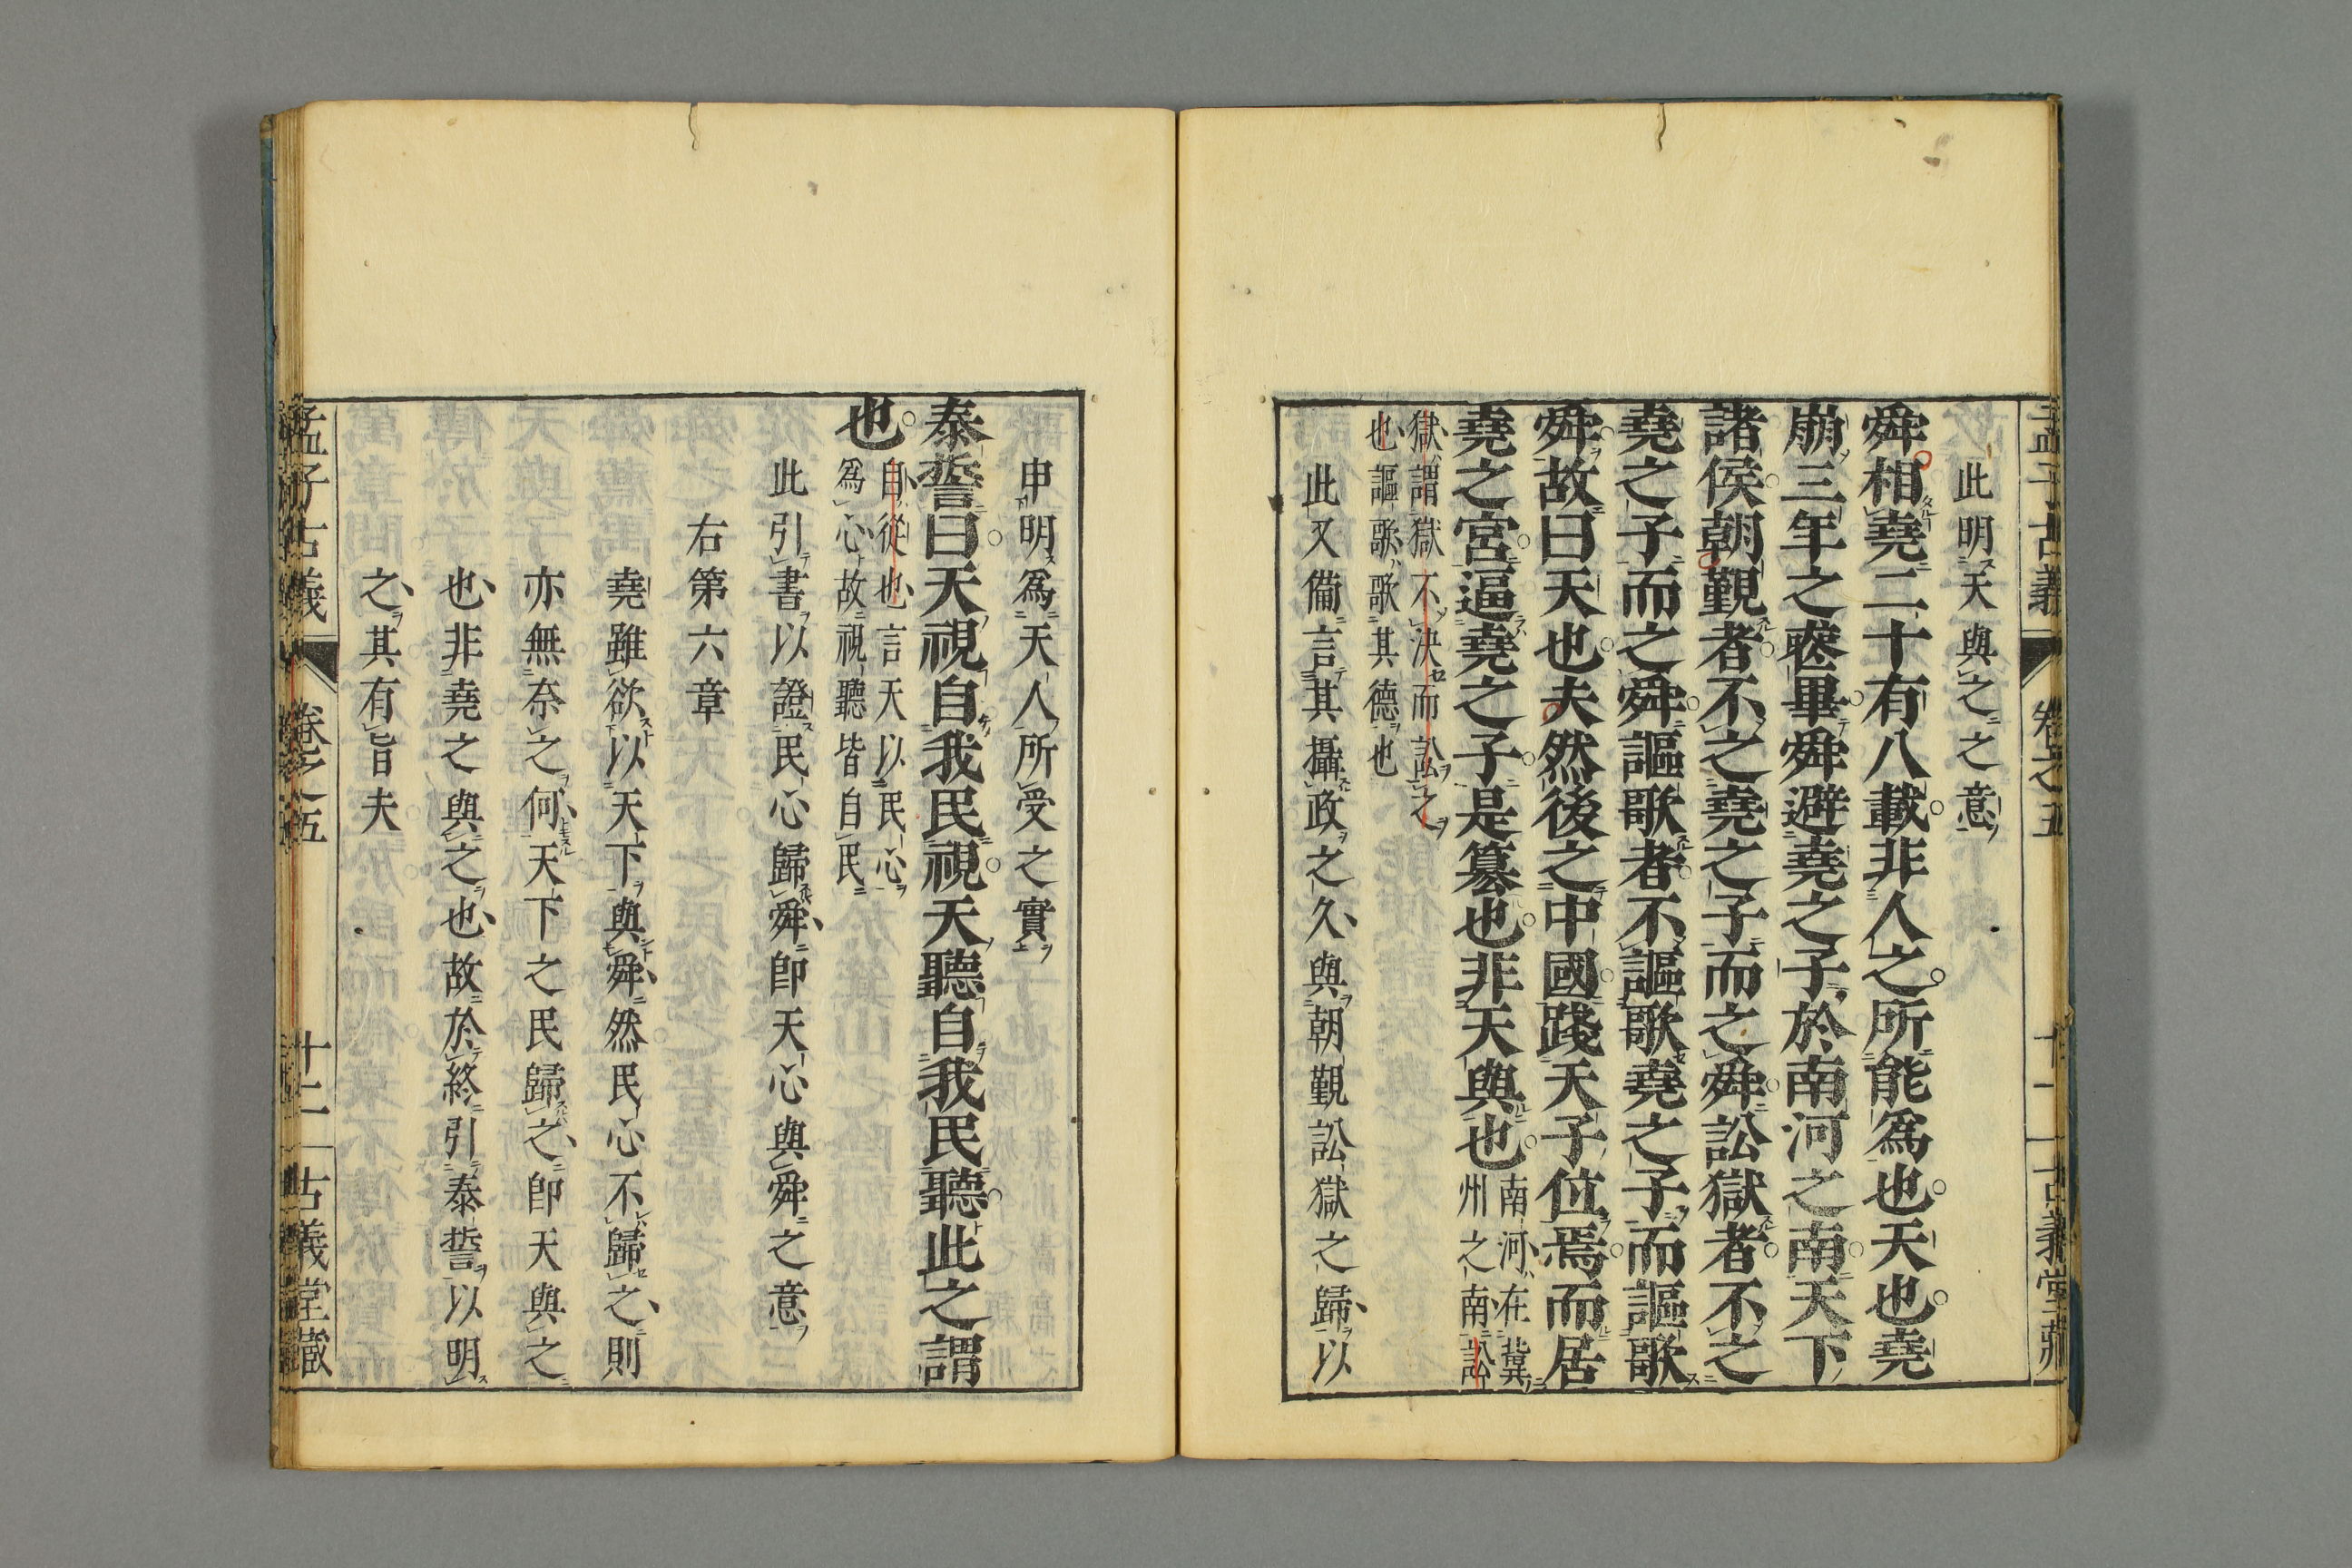 此明天與之之意
舜相堯二十有八載非人之所能爲也天也堯
崩三年之喪畢舜避堯之子於南河之南天下
諸侯朝覲者不之堯之子而之舜訟獄者不之
堯之子而之舜謳歌者不謳歌堯之子而謳歌
舜故曰天也夫然後之中國踐天子位焉而居
堯之宮逼堯之子是簒也非天與也
南河在冀
州之南訟
獄謂獄不決而訟之
也謳歌歌其德也
此又備言其攝政之久與朝覲訟獄之歸以
申明爲天人所受之實
泰誓曰天視自我民視天聽自我民聽此之謂
也
自從也言天以民心
爲心故視聽皆自民
此引書以證民心歸舜卽天心與舜之意
右第六章
堯雖欲以天下與舜然民心不歸之則
亦無奈之何天下之民歸之卽天與之
也非堯之與之也故於終引泰誓以明
之其有旨夫
孟子古義
卷之五
十二
古義堂藏